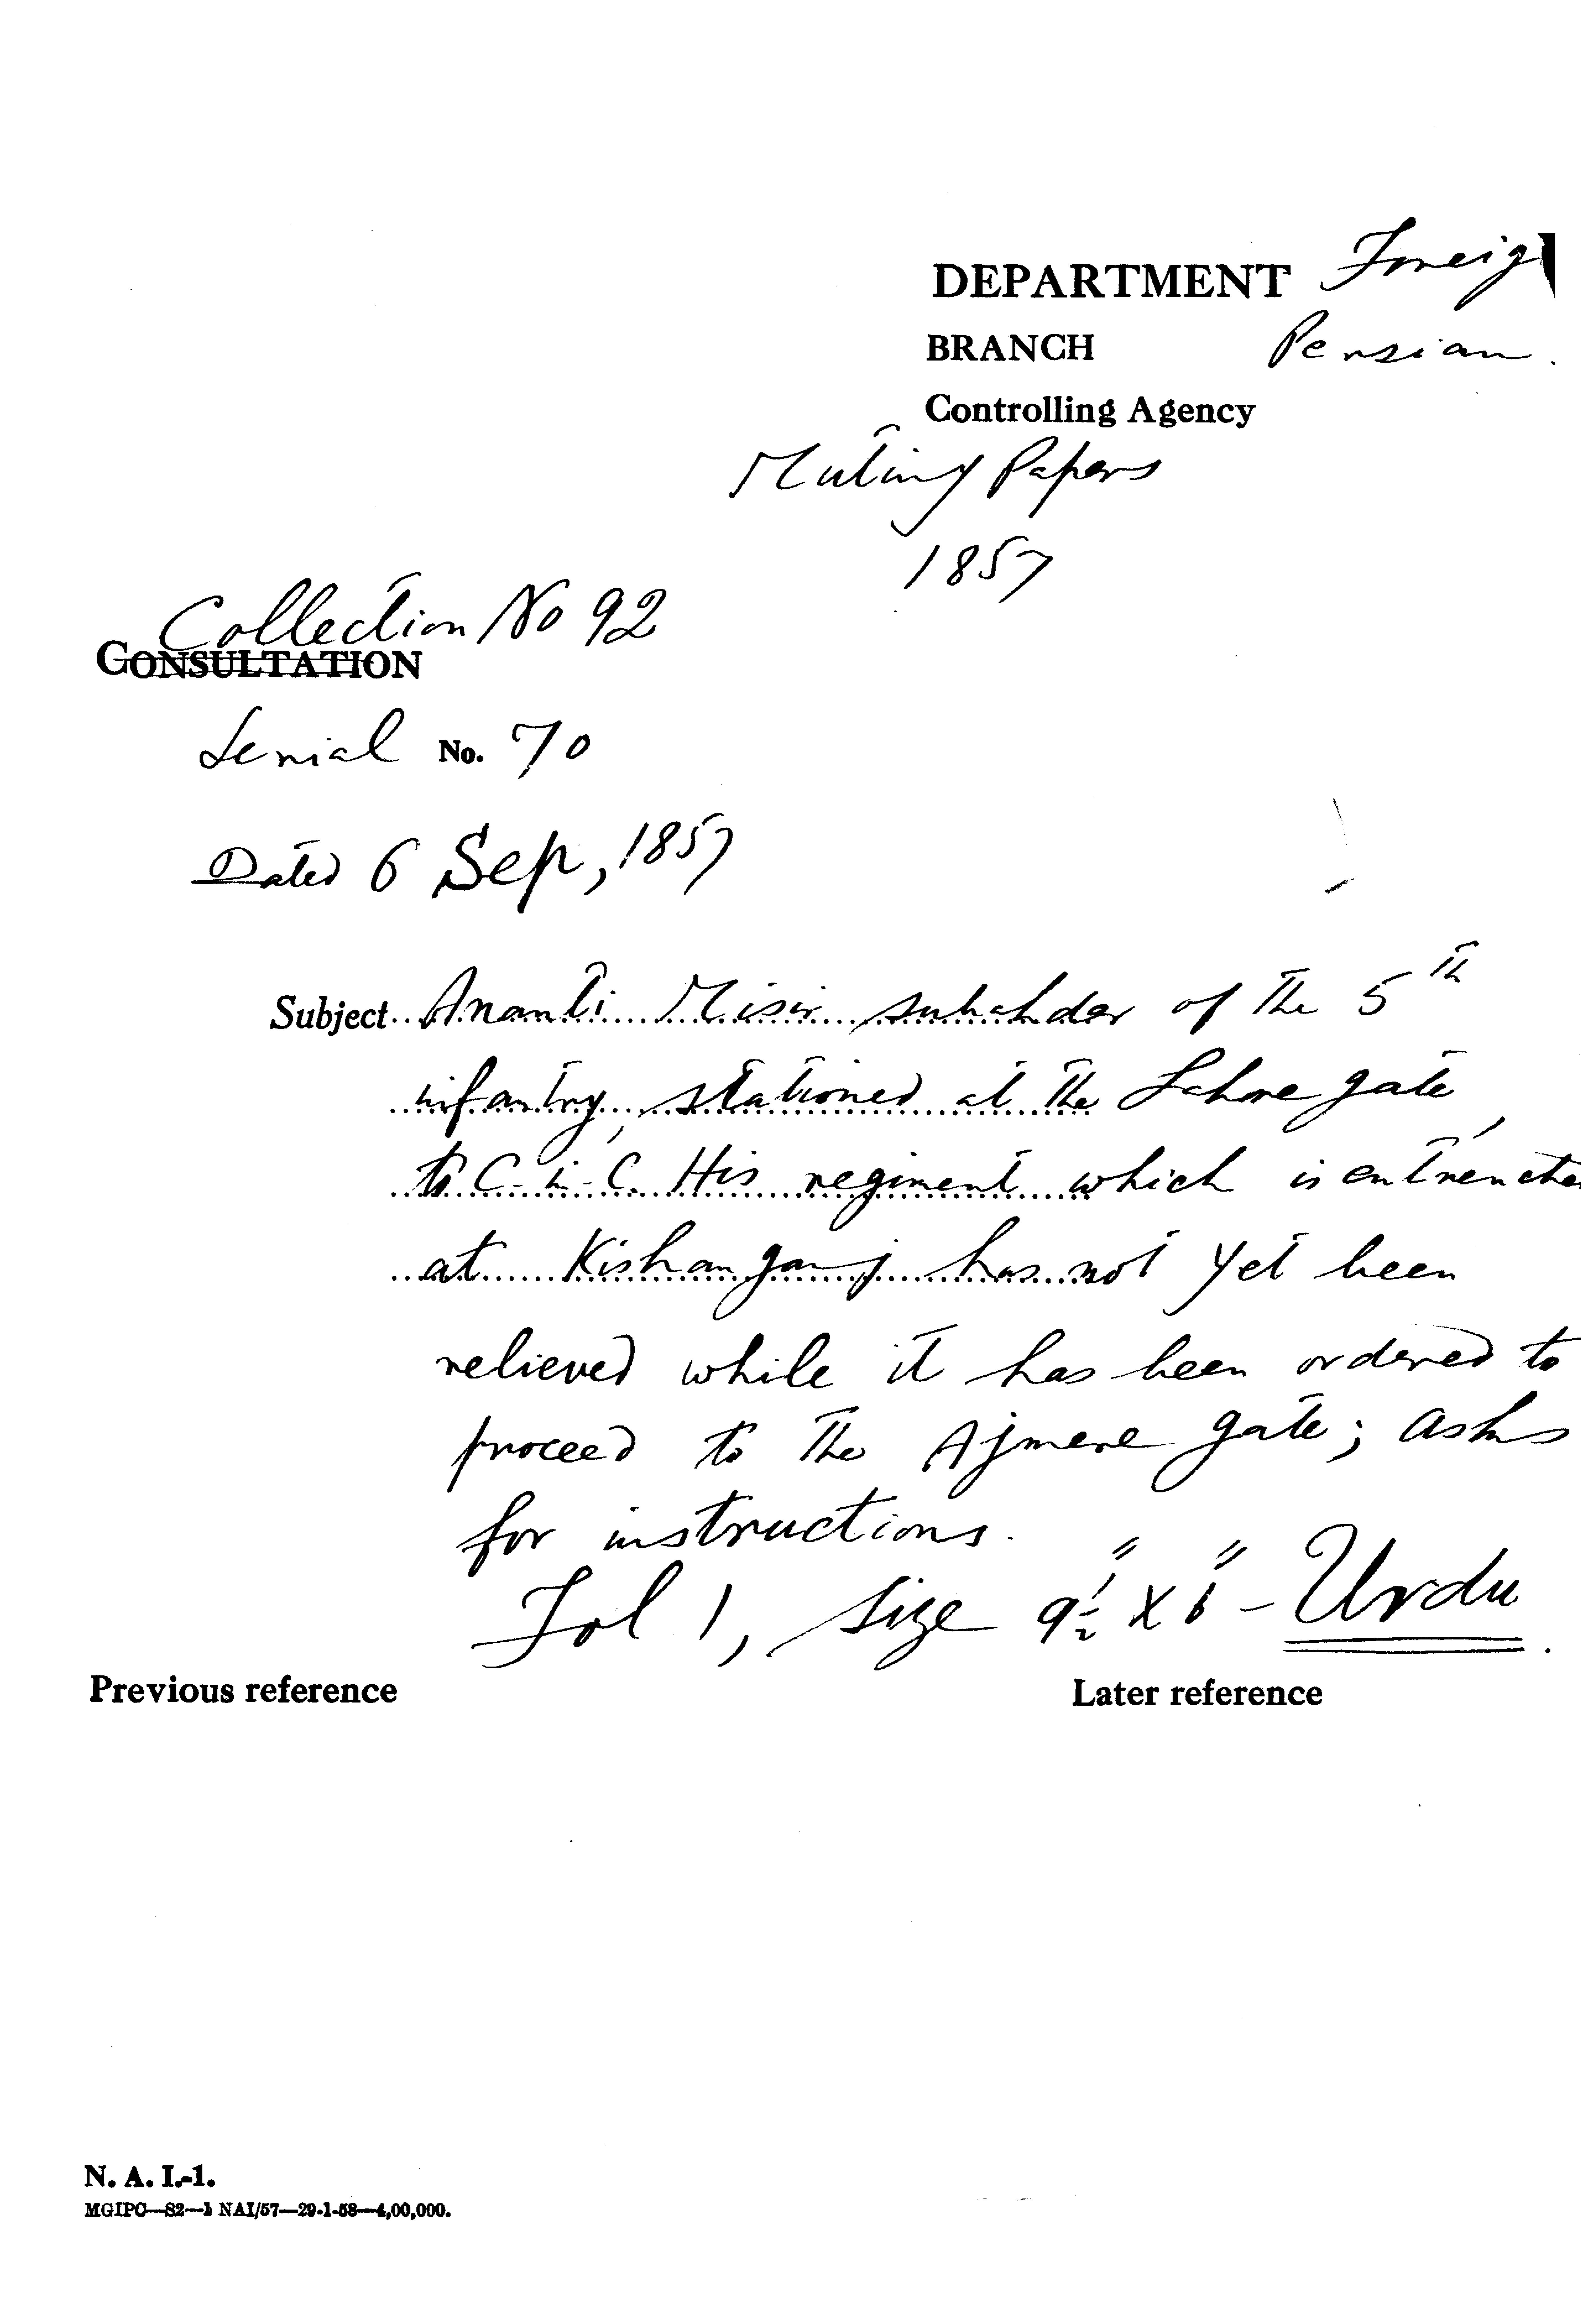 DEPARTMENT Foreig
BRANCH Persian.
Controlling Agency
Mutiny Papers
1857
Collection No 92
CONSULTATION
Serial No. 70
Dated 6 Sep, 1857
Subject.. Ananti Misir subahdar of the 5th
infantry, stationed at the Lahore gate,
to C-in-C. His regiment which is entrenche
at Kishanganj has not yet been
relieved while it has been ordered to
proceed to the Ajmere gate; asks
for instructions.
Fol 1, Size 9½" X 6" - Urdu.
Previous reference
Later reference
N. A. I.-1.
MGIPC—S2—1 NAI/57—29-1-58—4,00,000.